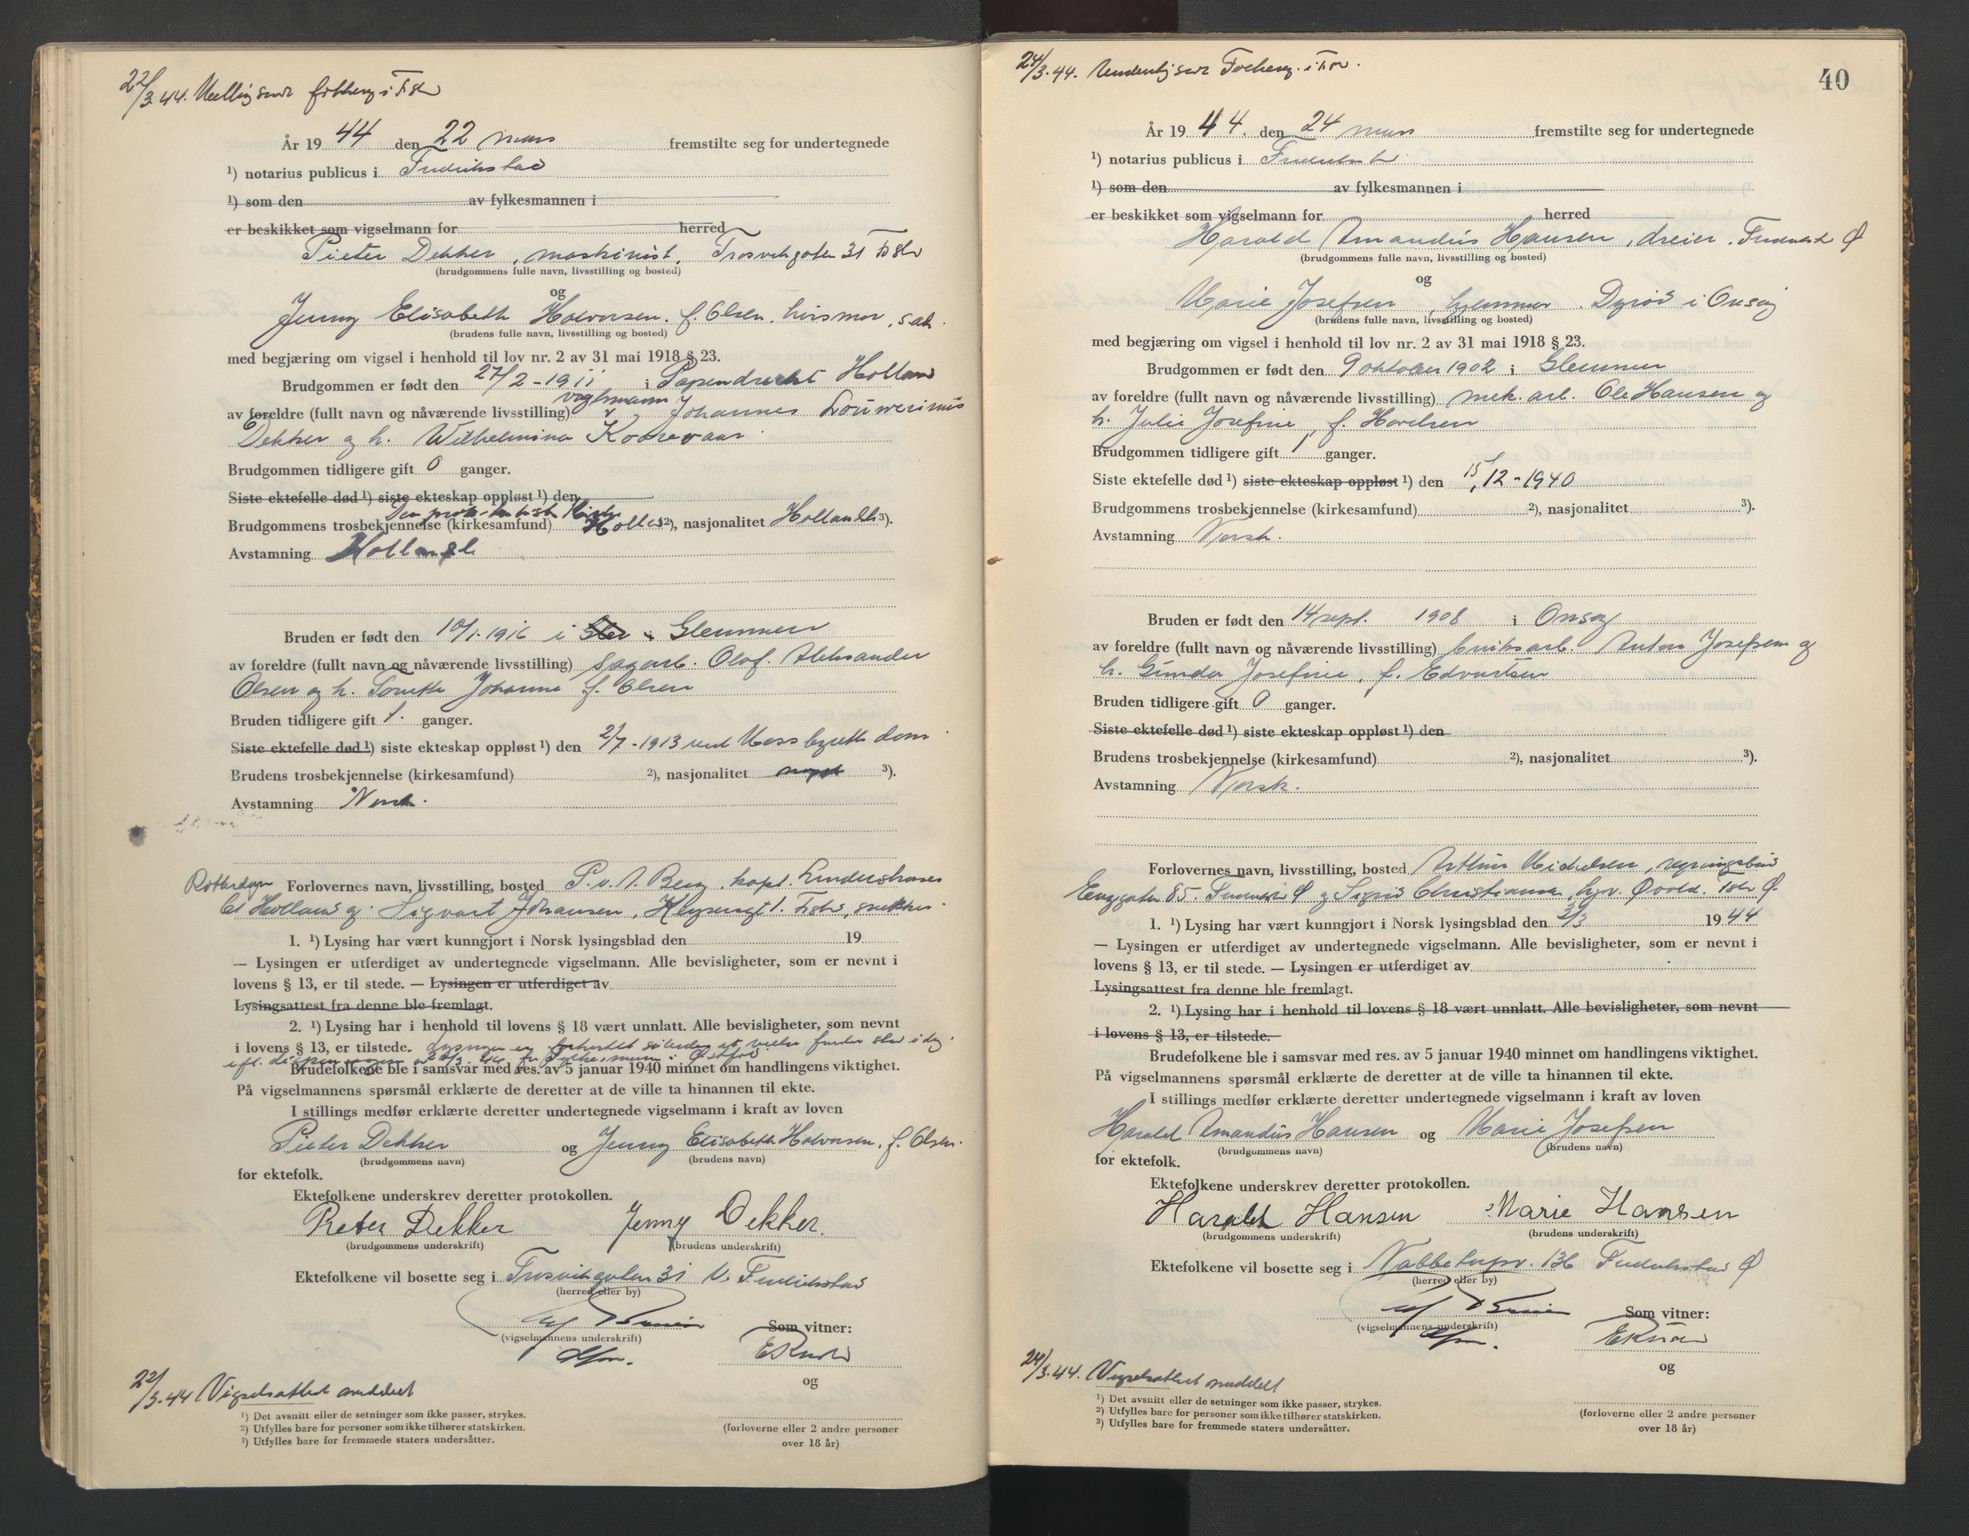 22/3.44.
År 19 44 den 22 mars fremstilte seg for undertegnede
¹) notarius publicus i Fredrikstad
¹) som den av fylkesmannen i
er beskikket som vigselmann for herred
Pieter Dekker, maskinist, Trosvikgaten 31 Fr.stad
(brudgommens fulle navn, livsstilling og bosted)
og
Jenny Elisabeth Halvorsen f. Olsen. husmor, s.st.
(brudens fulle navn, livsstilling og bosted)
med begjæring om vigsel i henhold til lov nr. 2 av 31 mai 1918 § 23.
Brudgommen er født den 27/2-1911 i Papendrecht Holland
av foreldre (fullt navn og nåværende livsstilling) Johannes Louwerinus
Dekker og h. Wilhelmina Koorevaar.
Brudgommen tidligere gift 0 ganger.
Siste ektefelle død ¹) siste ekteskap oppløst ¹) den
Brudgommens trosbekjennelse (kirkesamfund) ²), nasjonalitet Hollandsk ³).
Avstamning Hollandsk
Bruden er født den 10/1-1916 i Glemmen
av foreldre (fullt navn og nåværende livsstilling) sagarb. Olof Aleksander
Olsen og h. Johanne f. Olsen
Bruden tidligere gift 1. ganger.
Siste ektefelle død ¹) siste ekteskap oppløst ¹) den 2/7-1913 ved Moss byretts dom
Brudens trosbekjennelse (kirkesamfund) ²), nasjonalitet norsk ³).
Avstamning Norsk.
Rotterdam Forlovernes navn, livsstilling, bosted P. v. d. Berg, kapt.
Holland og Sigvart Johansen, 1. Fr.stad, snekker.
1. ¹) Lysing har vært kunngjort i Norsk lysingsblad den 19
— Lysingen er utferdiget av undertegnede vigselmann. Alle bevisligheter, som er nevnt i
lovens § 13, er til stede. — Lysingen er utferdiget av
Lysingsattest fra denne ble fremlagt.
2. ¹) Lysing har i henhold til lovens § 18 vært unnlatt. Alle bevisligheter, som nevnt
i lovens § 13, er tilstede. Lysingen er forkortet således at vielse finder sted i dag.
Brudefolkene ble i samsvar med res. av 5 januar 1940 minnet om handlingens viktighet.
På vigselmannens spørsmål erklærte de deretter at de ville ta hinannen til ekte.
I stillings medfør erklærte deretter undertegnede vigselmann i kraft av loven
Pieter Dekker og Jenny Elisabeth Halvorsen, f. Olsen.
(brudgommens navn) (brudens navn)
for ektefolk.
Ektefolkene underskrev deretter protokollen.
Pieter Dekker Jenny Dekker.
(brudgommens underskrift) (brudens underskrift)
Ektefolkene vil bosette seg i Trosvikgaten 31 V. Fredrikstad
(herred eller by)
(vigselmannens underskrift) Som vitner:
og
22/3.44 Vigselsattest meddelt
¹) Det avsnitt eller de setninger som ikke passer, strykes.
²) Utfylles bare for personer som ikke tilhører statskirken.
³) Utfylles bare for fremmede staters undersåtter.
(forloverne eller 2 andre personer
over 18 år)
24/3.44.
40
År 19 44. den 24 mars fremstilte seg for undertegnede
¹) notarius publicus i Fredrikstad
¹) som den av fylkesmannen i
er beskikket som vigselmann for herred
Harald Amandus Hansen, dreier, Fredrikstad Ø
(brudgommens fulle navn, livsstilling og bosted)
og
Marie Josefsen, hjemmev. Dyrød i Onsøy
(brudens fulle navn, livsstilling og bosted)
med begjæring om vigsel i henhold til lov nr. 2 av 31 mai 1918 § 23.
Brudgommen er født den 9 oktober 1902 i Glemmen
av foreldre (fullt navn og nåværende livsstilling) mek. arb. Ole Hansen og
h. Julie Josefine, f.
Brudgommen tidligere gift 1 ganger.
Siste ektefelle død ¹) siste ekteskap oppløst ¹) den 15/12-1940
Brudgommens trosbekjennelse (kirkesamfund) ²), nasjonalitet ³).
Avstamning Norsk.
Bruden er født den 14 sept. 1908 i Onsøy
av foreldre (fullt navn og nåværende livsstilling) bruksarb. Anton Josefsen og
h. Gunda Josefine, f. Edvartsen
Bruden tidligere gift 0 ganger.
Siste ektefelle død ¹) siste ekteskap oppløst ¹) den
Brudens trosbekjennelse (kirkesamfund) ²), nasjonalitet ³).
Avstamning Norsk.
Forlovernes navn, livsstilling, bosted Arthur Michelsen,
Enggaten 85. Fredrikst. Ø og Sigrid Christiansen, Fr.stad Ø.
1. ¹) Lysing har vært kunngjort i Norsk lysingsblad den 2/3 1944
— Lysingen er utferdiget av undertegnede vigselmann. Alle bevisligheter, som er nevnt i
lovens § 13, er til stede. — Lysingen er utferdiget av
Lysingsattest fra denne ble fremlagt.
2. ¹) Lysing har i henhold til lovens § 18 vært unnlatt. Alle bevisligheter, som nevnt
i lovens § 13, er tilstede.
Brudefolkene ble i samsvar med res. av 5 januar 1940 minnet om handlingens viktighet.
På vigselmannens spørsmål erklærte de deretter at de ville ta hinannen til ekte.
I stillings medfør erklærte deretter undertegnede vigselmann i kraft av loven
Harald Amandus Hansen og Marie Josefsen
(brudgommens navn) (brudens navn)
for ektefolk.
Ektefolkene underskrev deretter protokollen.
Harald Hansen Marie Hansen
(brudgommens underskrift) (brudens underskrift)
Ektefolkene vil bosette seg i Nabbetorpv. 136 Fredrikstad Ø
(herred eller by)
(vigselmannens underskrift) Som vitner:
og
24/3.44. Vigselsattest meddelt
¹) Det avsnitt eller de setninger som ikke passer, strykes.
²) Utfylles bare for personer som ikke tilhører statskirken.
³) Utfylles bare for fremmede staters undersåtter.
(forloverne eller 2 andre personer
over 18 år)